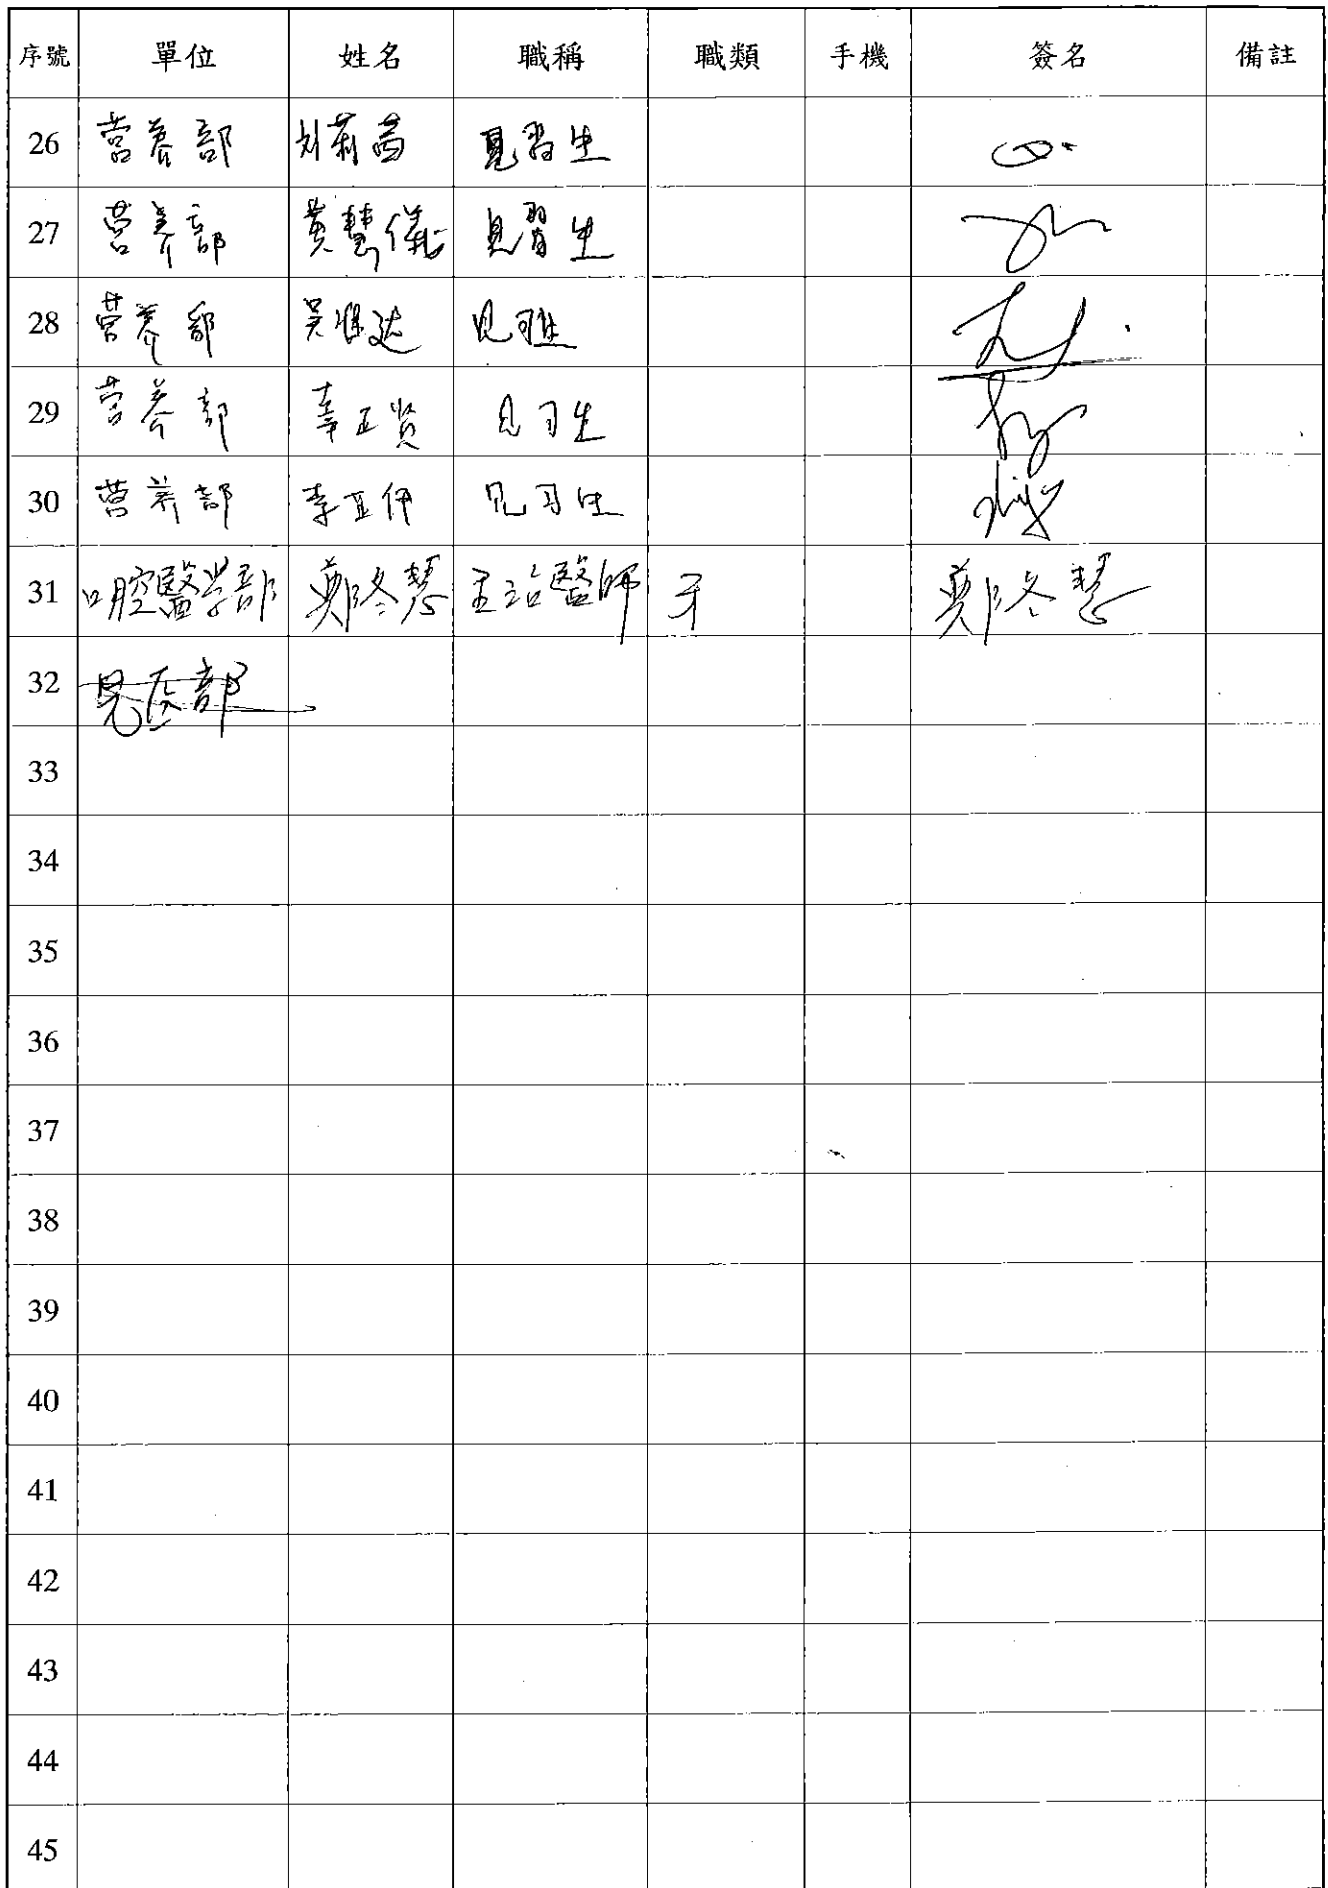 序號 單位 姓名 職稱 職類 手機 簽名 備註
26 营养部 刘莉茵 見習生
27 营养部 黃慧儀 見習生
28 营养部 吴 达 见习生
29 营养部 辜正贤 见习生
30 营养部 李亚伊 见习生
31 口腔醫学部 鄭冬慧 主治醫師 牙 鄭冬慧
32
33
34
35
36
37
38
39
40
41
42
43
44
45